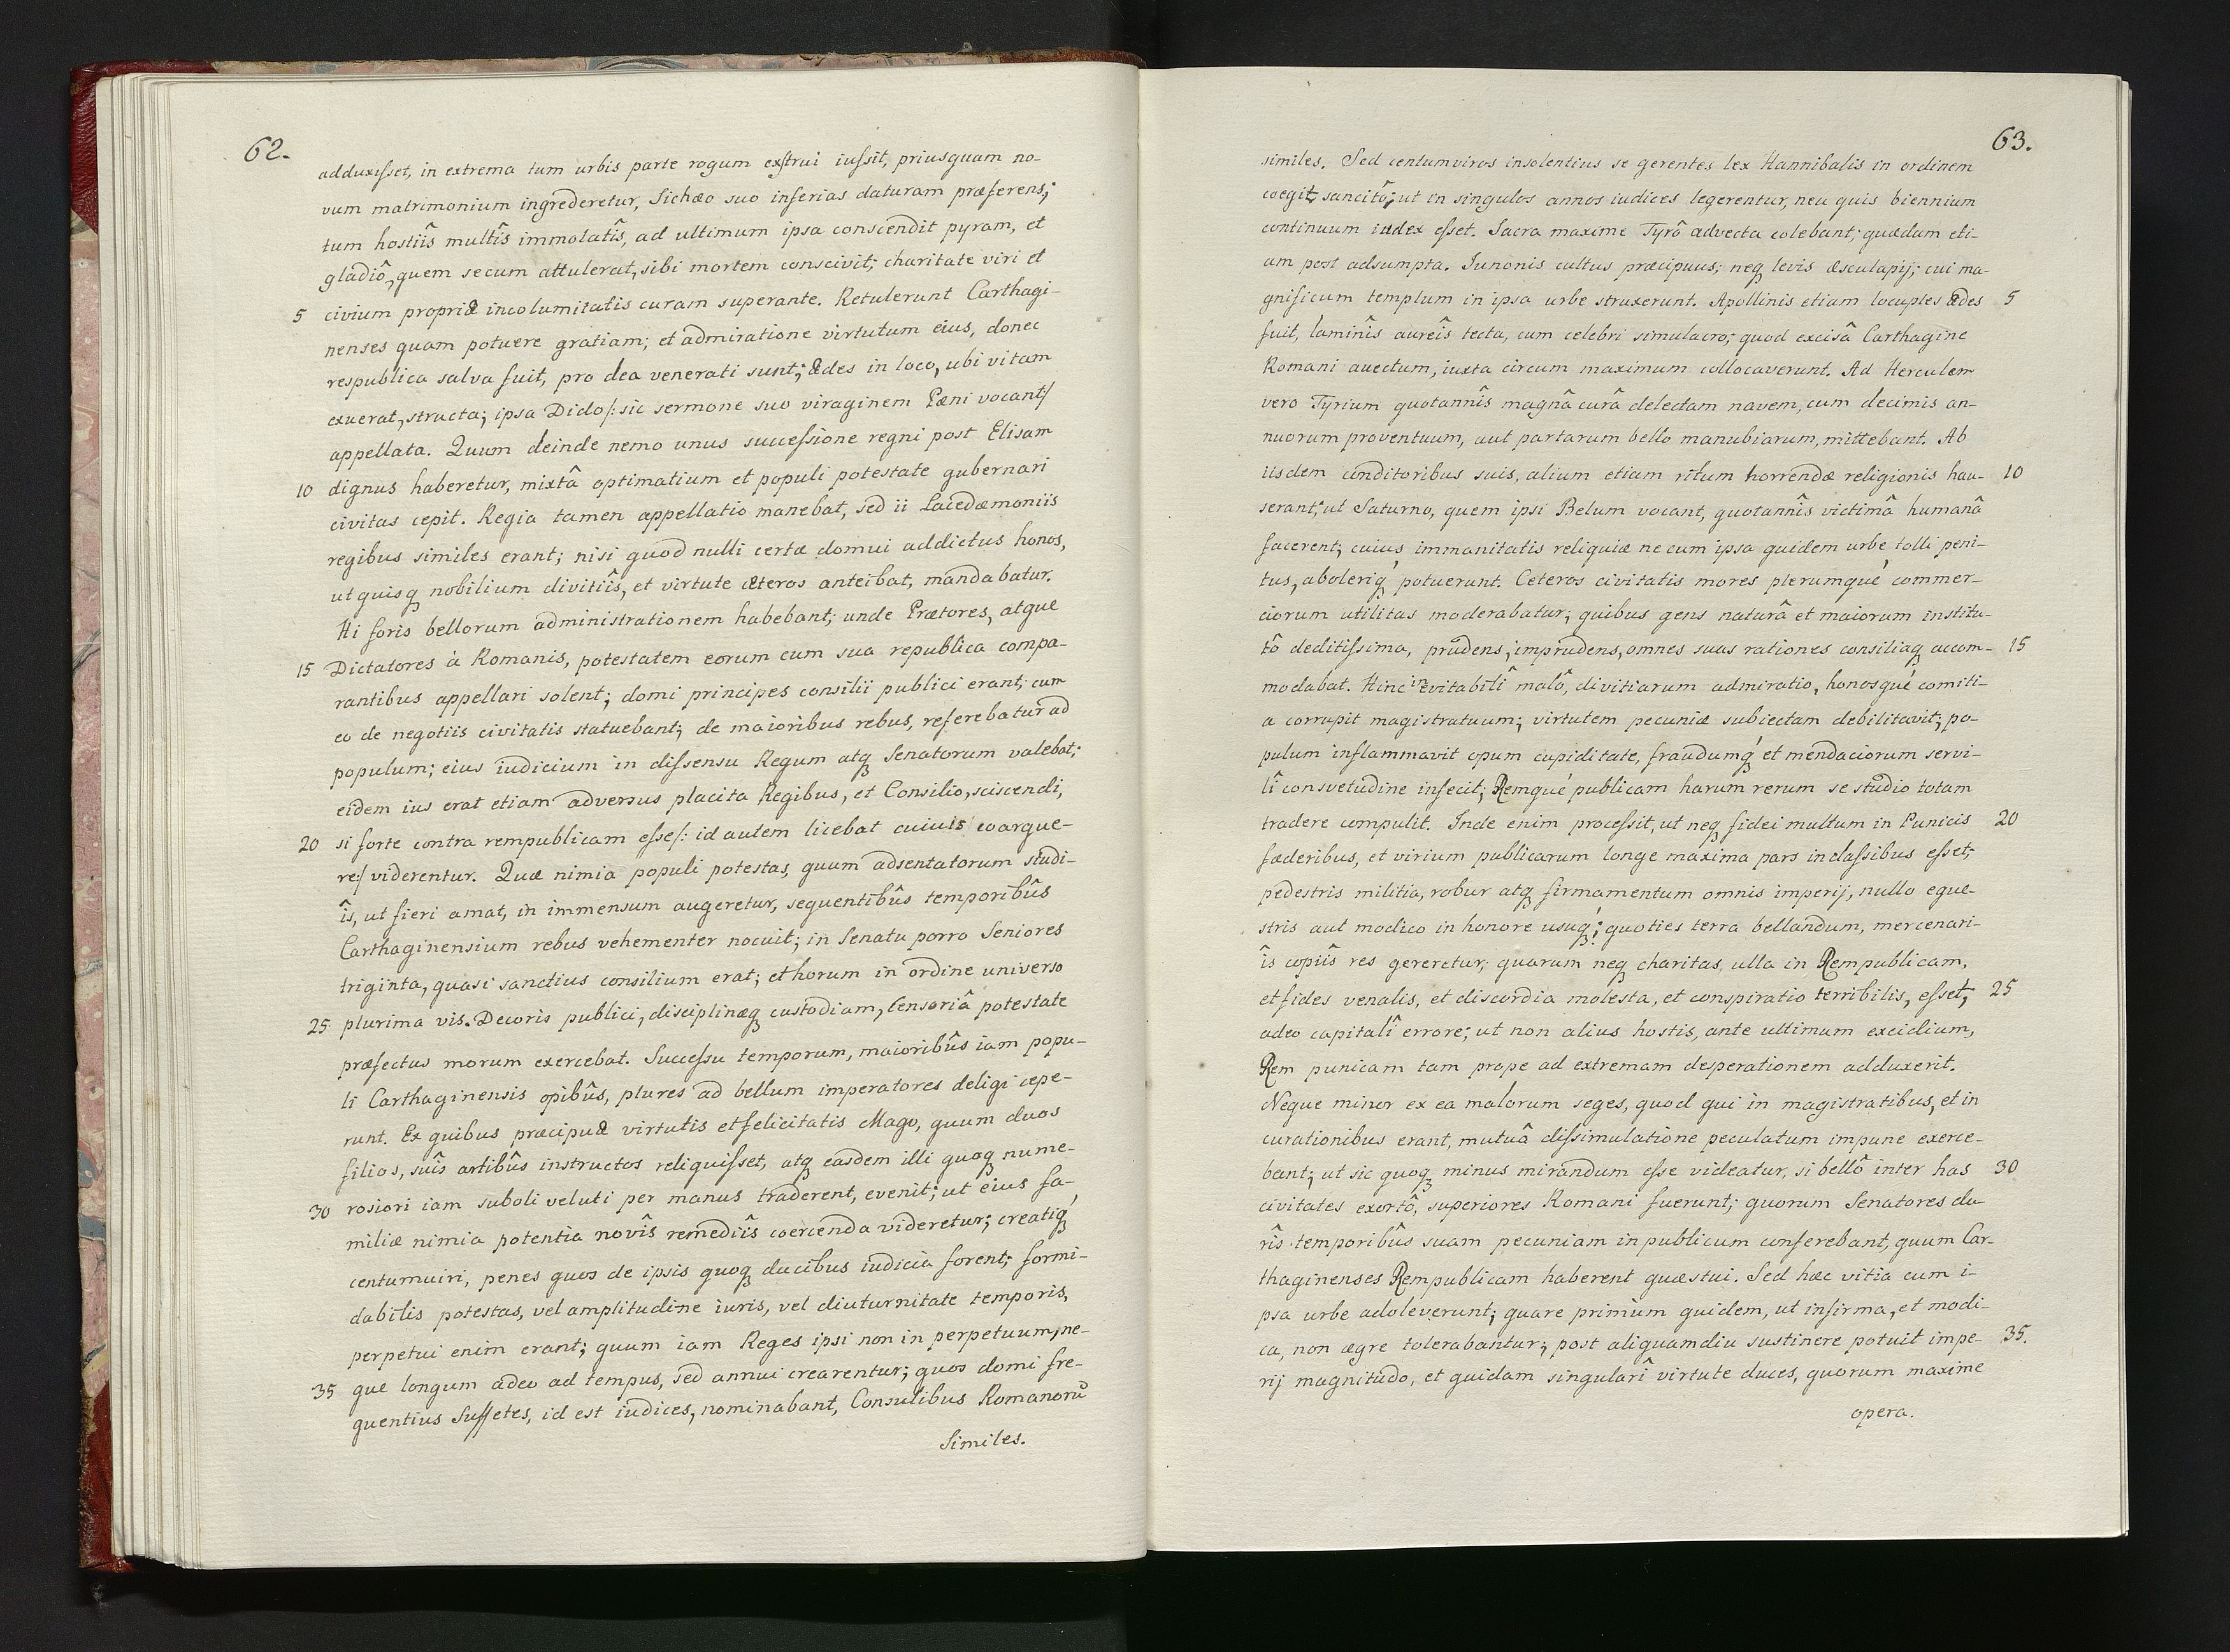 62.
adduxisset, in extrema tum urbis parte rogum exstrui iussit, priusquam no-
vum matrimonium ingrederetur, Sichæo suo inferias daturam præferens;
tum hostiîs multîs immolatîs, ad ultimum ipsa conscendit pyram, et
gladiô, quem secum attulerat, sibi mortem conscivit; charitate viri et
5 civium propriæ incolumitatis curam superante. Retulerunt Carthagi-
nenses quam potuere gratiam; et admiratione virtutum eius, donec
respublica salva fuit, pro dea venerati sunt; ædes in loco, ubi vitam
exuerat, structa; ipsa Dido /: sic sermone suo viraginem Pæni vocant/
appellata. Quum deinde nemo unus successione regni post Elisam
10 dignus haberetur, mixtâ optimatium et populi potestate gubernari
civitas cepit. Regia tamen appellatio manebat, sed ii Lacedæmoniis
regibus similes erant; nisi quod nulli certæ domui addictus honos,
ut quisq nobilium divitiîs, et virtute cæteros anteibat, mandabatur.
Hi foris bellorum administrationem habebant; unde Prætores, atque
15 Dictatores à Romanis, potestatem eorum cum sua republica compa-
rantibus appellari solent; domi principes consilii publici erant; cum
eo de negotiis civitatis statuebant; de maioribus rebus, referebatur ad
populum; eius iudicium in dissensu Regum atq Senatorum valebat;
eidem ius erat etiam adversus placita Regibus, et Consilio, sciscendi,
20 si forte contra rempublicam esse /: id autem licebat cuiuis coargue-
re:/ viderentur. Quæ nimia populi potestas, quum adsentatorum studi-
îs, ut fieri amat, in immensum augeretur, sequentibûs temporibûs
Carthaginensium rebus vehementer nocuit; in Senatu porro Seniores
triginta, quasi sanctius consilium erat; et horum in ordine universo
25 plurima vis. Decoris publici, disciplinæq custodiam, Censoriâ potestate
præfectus morum exercebat. Successu temporum, maioribûs iam popu-
li Carthaginensis opibûs, plures ad bellum imperatores deligi cepe-
runt. Ex quibus præcipuæ virtutis et felicitatis Mago, quum duos
filios, suîs artibûs instructos reliquisset, atq easdem illi quoq nume-
30 rosiori iam suboli veluti per manus traderent, evenit; ut eius fa-
miliæ nimia potentia novîs remediîs coercenda videretur; creatiq́
centumuiri, penes quos de ipsis quoq ducibus iudicia forent; formi-
dabilis potestas, vel amplitudine iuris, vel diuturnitate temporis,
perpetui enim erant; quum iam Reges ipsi non in perpetuum, ne-
35 que longum adeo ad tempus, sed annui crearentur; quos domi fre-
quentius Suffetes, id est iudices, nominabant, Consulibus Romanorū
Similes.
63.
similes. Sed centumviros insolentius se gerentes lex Hannibalis in ordinem
coegit, sancitô; ut in singulos annos iudices legerentur, neu quis biennium
continuum iudex esset. Sacra maxime Tyrô advecta colebant; quædam eti-
am post adsumpta. Iunonis cultus præcipuus; neq levis Æsculapij; cui ma-
gnificum templum in ipsa urbe struxerunt. Apollinis etiam locuples ædes 5
fuit, laminîs aureîs tecta, cum celebri simulacro; quod excisâ Carthagine
Romani auectum, iuxta circum maximum collocaverunt. Ad Herculem
vero Tyrium quotannîs magnâ curâ delectam navem, cum decimis an-
nuorum proventuum, aut partarum bello manubiarum, mittebant. Ab
iisdem conditoribus suis, alium etiam ritum horrendæ religionis hau- 10
serant; ut Saturno, quem ipsi Belum vocant, quotannîs victimâ humanâ
facerent; cuius immanitatis reliquiæ ne cum ipsa quidem urbe tolli peni-
tus, aboleriq́ potuerunt. Ceteros civitatis mores plerumqué commer-
ciorum utilitas moderabatur; quibus gens naturâ et maiorum institu-
tô deditissima, prudens, imprudens, omnes suas rationes consiliaq accom- 15
modabat. Hinc inevitabilî malô, divitiarum admiratio, honosqué comiti-
a corrupit magistratuum; virtutem pecuniæ subiectam debilitavit; po-
pulum inflammavit opum cupiditate, fraudumq́ et mendaciorum servi-
lî consvetudine infecit; Remqué publicam harum rerum se studio totam
tradere compulit. Inde enim processit, ut neq fidei multum in Punicis 20
fæderibus, et virium publicarum longe maxima pars in classibus esset;
pedestris militia, robur atq firmamentum omnis imperij, nullo eque-
stris aut modico in honore usuq́; quoties terra bellandum, mercenari-
îs copiîs res gereretur; quarum neq charitas ulla in Rempublicam,
et fides venalis, et discordia molesta, et conspiratio terribilis, esset; 25
adeo capitalî errore; ut non alius hostis, ante ultimum excidium,
Rem punicam tam prope ad extremam desperationem adduxerit.
Neque minor ex ea malorum seges, quod qui in magistratibus, et in
curationibus erant, mutuâ dissimulatione peculatum impune exerce-
bant; ut sic quoq minus mirandum esse videatur, si bellô inter has 30
civitates exortô, superiores Romani fuerunt; quorum Senatores du
rîs temporibûs suam pecuniam in publicum conferebant, quum Car-
thaginenses Rempublicam haberent quæstui. Sed hæc vitia cum i-
psa urbe adoleverunt; quare primum quidem, ut infirma, et modi-
ca, non ægre tolerabantur; post aliquamdiu sustinere potuit impe- 35.
rij magnitudo, et quidam singularî virtute duces, quorum maxime
opera.